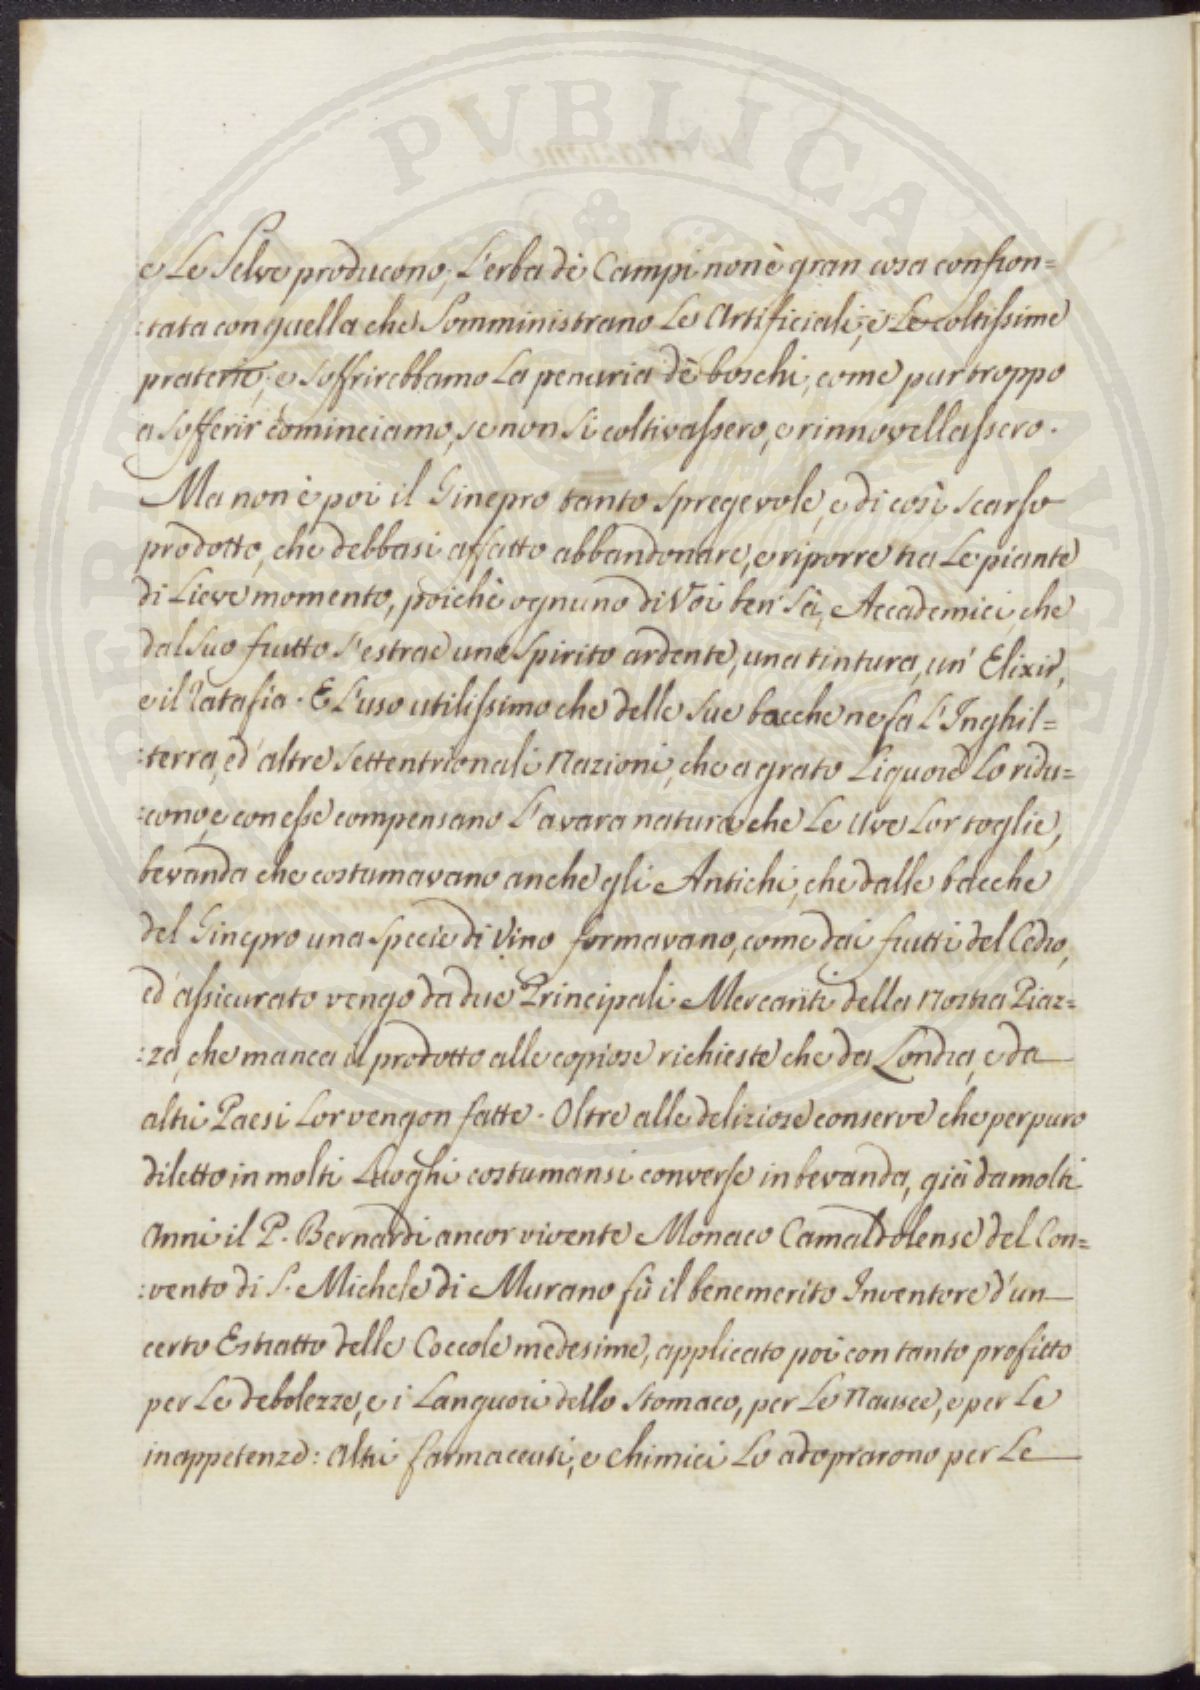 PERITURA PUBLICAE AUGE
e le Selve producono, l'erba dè Campi non è gran cosa confron=
:tata con quella che somministrano le Artificiali, e le coltissime
praterie, e soffrirebbamo la penuria dè boschi, come pur troppo
a sofferir cominciamo, se non si coltivassero, e rinnovellassero.
Ma non è poi il Ginepro tanto spregevole, e di così scarso
prodotto, che debbasi affatto abbandonare, e riporre tra le piante
di lieve momento, poichè ognuno di Voi ben sà, Accademici, che
dal suo frutto s'estrae uno Spirito ardente, una tintura, un' Elixir,
e il ratafia. E l'uso utilissimo che delle sue bacche ne fa l'Inghil=
:terra, ed altre settentrionali Nazioni, che a grato liquore lo ridu=
:cono, e con esse compensano l'avara natura che le Uve lor toglie,
bevanda che costumavano anche gli Antichi, che dalle bacche
del Ginepro una specie di Vino formavano, come dai frutti del Cedro,
ed assicurato vengo da due Principali Mercanti della nostra Piaz=
:za, che manca il prodotto alle copiose richieste che da Londra, e da
altri Paesi lor vengon fatte. Oltre alle deliziose conserve che per puro
diletto in molti Luoghi costumansi converse in bevanda, già da molti
Anni il P. Bernardi ancor vivente Monaco Camaldolense del Con=
:vento di S. Michele di Murano fù il benemerito Inventore d'un
certo Estratto delle Coccole medesime, applicato poi con tanto profitto
per le debolezze, e i languori dello stomaco, per le nausee, e per le
inappetenze: altri farmaceuti, e chimici lo adoprarono per le